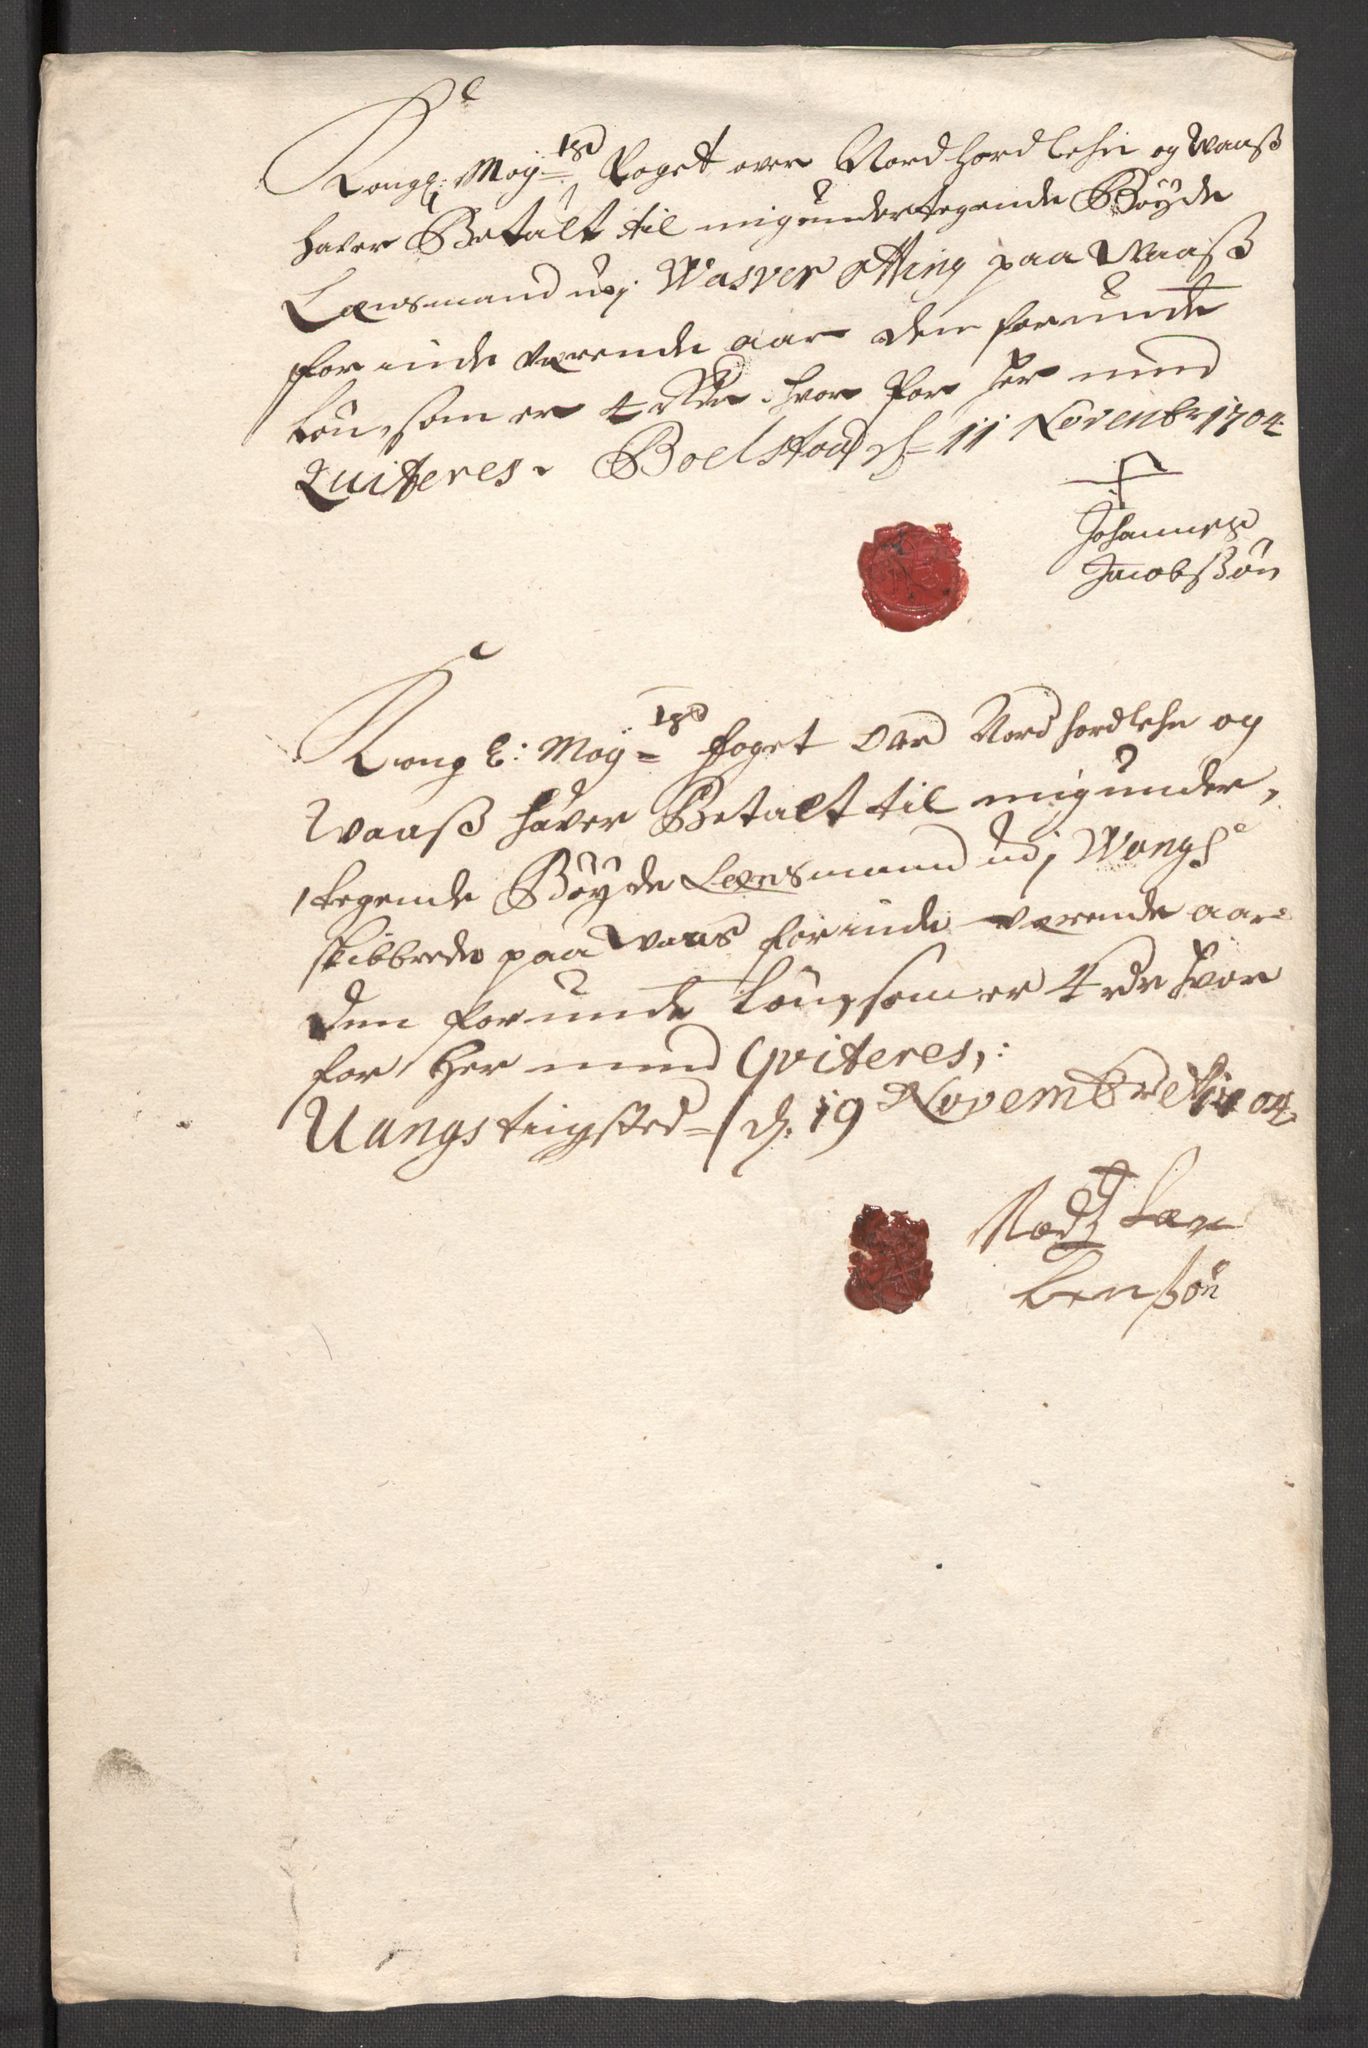 Kongl: May:ts Foget over Nordhordlehn og Waaß
haver Betalt til mig undertegende Bøyde
Lænsmand udj Wasver Otting paa Waaß
for inde værende aar den forunte
Løn, som er 4 Rdr hvor for her med
Quiteres. Boelstad d: 11 Novenbr 1704
Johannes
Jacobßøn
Kong l: May:ts foget over Nordhordlehn og
Waaß haver Betalt til mig under,
tegende Bøyde Lænsmand udj Wangs
skibbrede paa Waas for inde værende aar
den forunte Løn, som er 4 rdr hvor
for her med Qviteres,:
Uangs tingsted d: 19 Novembr 1704
Madtz Lar